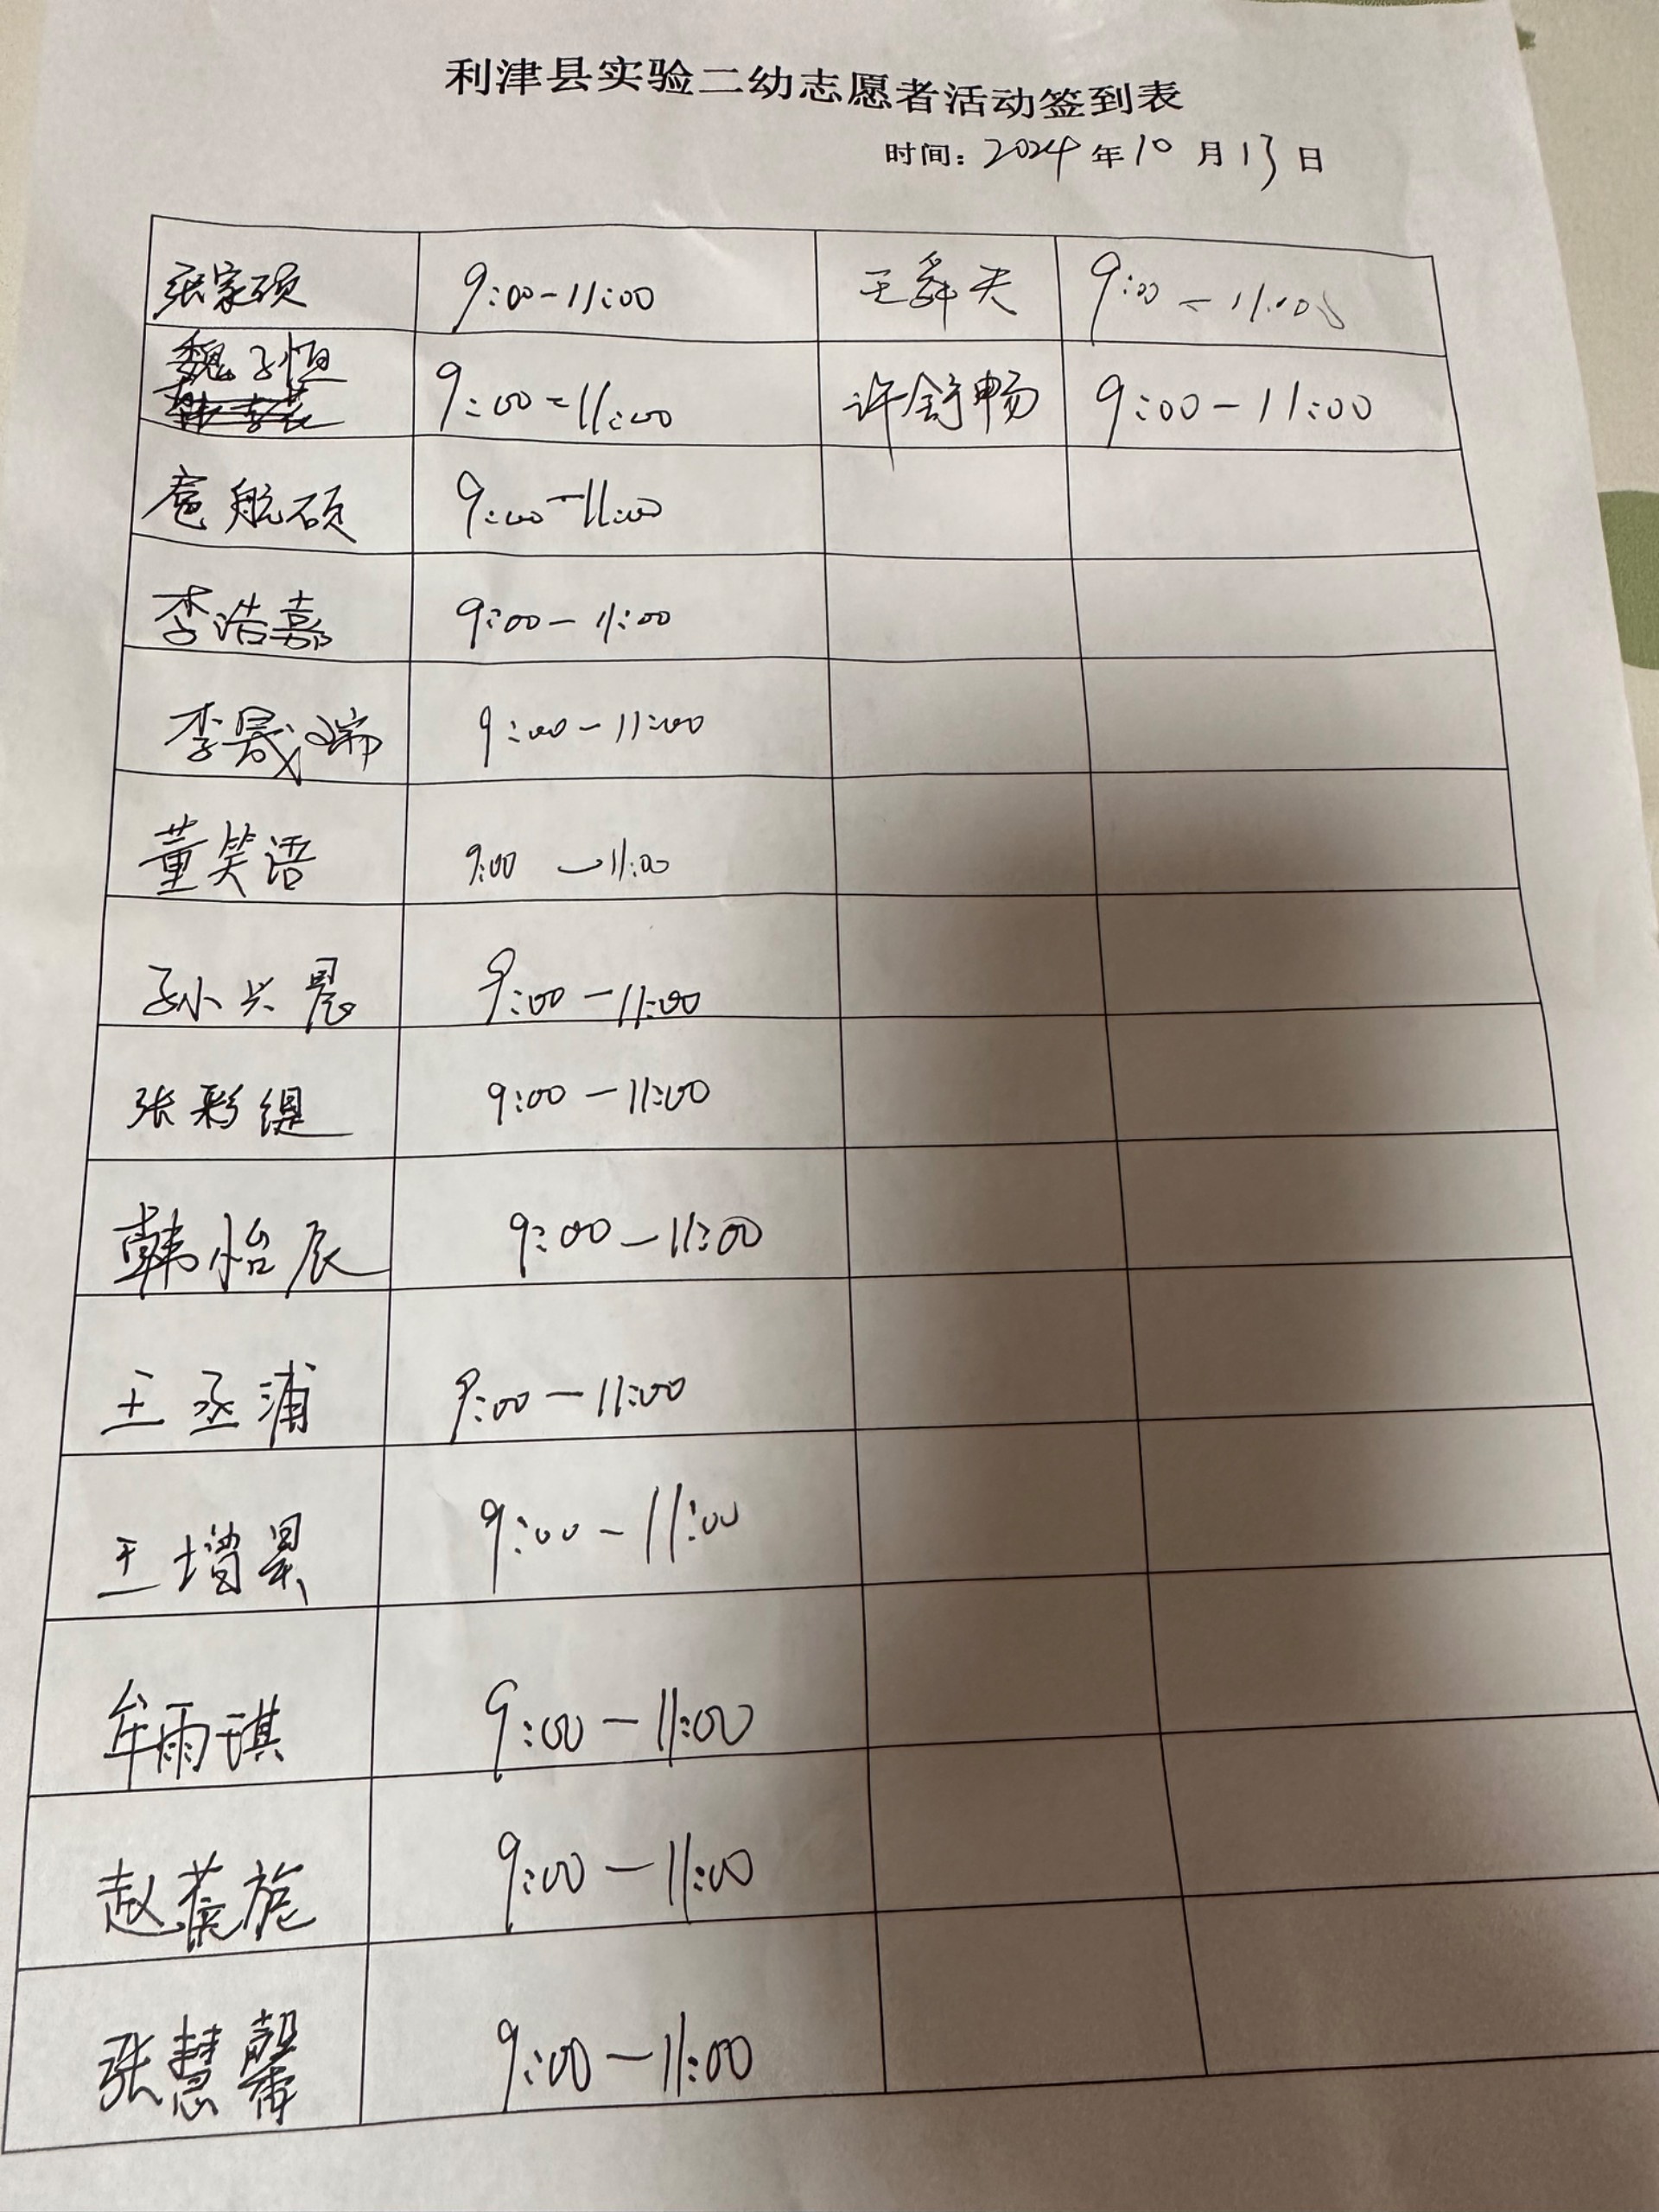 利津县实验二幼志愿者活动签到表
时间：2024年10月13日
张家硕 9:00-11:00 王舜天 9:00-11:00
魏子恒 9:00-11:00 许舒畅 9:00-11:00
航硕 9:00-11:00
李浩嘉 9:00-11:00
李晟瑞 9:00-11:00
董笑语 9:00-11:00
孙兴晨 9:00-11:00
张彩缇 9:00-11:00
韩怡辰 9:00-11:00
王丞浦 9:00-11:00
王增昊 9:00-11:00
牟雨琪 9:00-11:00
赵蕴旋 9:00-11:00
张慧馨 9:00-11:00